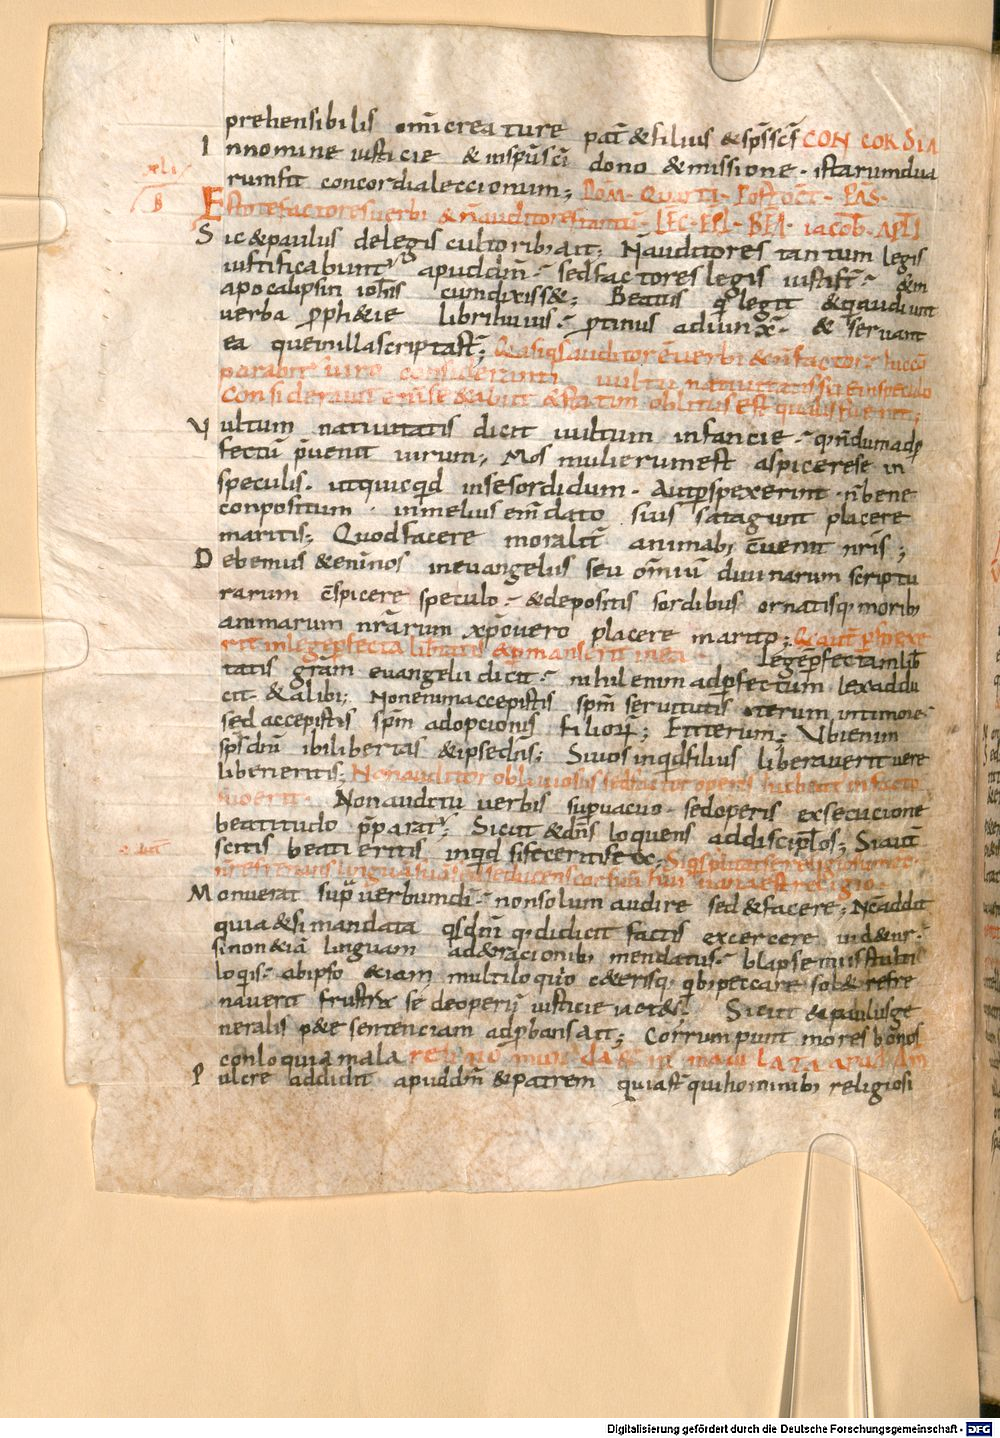 prehensibilis om̄i creature pat̄ & filius & sp̄s sc̄s CONCORDIA
Innomine iusticie & insp̄u sc̄i dono & missione · istarum dua
xli
rum fit concordia leccionum; DOM̄ · QUARTI · POST OCT̄ · PAS ·
B
Estote factores uerbi & n̄ auditores tantū · LEC · EPL̄ · BEA · iacob̄ · APLI
Sic & paulus de legis cultorib; ait; N̄ auditores tantum legis
iustificabunt' apud dm̄ · sed factores legis iustif̄ · & in
apocalipsin ioh̄is cum dixiss&; Beatus q̄ legit & q̄ audiunt
uerba p̄ph&ie libri huius · p̄tinus adiunx̄ · & seruant
ea que in illa scripta st̄; Quia siqs auditor ē uerbi & n̄ factor · hic cō
parabit' uiro consideranti uultū natiuitatis sue in speculo
Considerauit eni se & abiit & statim oblitus est qualis fuerit;
Vultum natiuitatis dicit uultum infancie · q̄ n̄dum ad p̄
fectū p̄uenit uirum; Mos mulierum est aspicere se in
speculis · ut quicq̄d in se sordidum · Aut p̄spexerint · n̄ bene
conpositum · in melius em̄dato suis satagunt placere
maritis; Quod facere moralit̄ animab; c̄uenit nr̄is;
Debemus & eni nos in euangeliis seu om̄iū diuinarum scriptu
rarum c̄spicere speculo · & depositis sordibus ornatisq; morib;
animarum nr̄arum xp̄o uero placere marito; Qui aut̄ p̄spexe
rit in lege p̄fecta libertatis & p̄manserit in ea · Lege p̄fectam lib̄
tatis gr̄am euangelii dicit · nihil enim ad p̄fectum lex addu
cit & alibi; Non enim accepistis sp̄m seruitutis iterum in timore ·
sed accepistis sp̄m adopcionis filiorū; Et iterum; Vbi enim
sp̄s dn̄i ibi libertas & ipse dn̄s; Si uos inq̄d filius liberauerit uere
liberi eritis; Non auditor obliuiosus sed factor operis hic beat' in facto
suo erit · Non auditu uerbis sup̄uacuo · sed operis exsecucione
beatitudo p̄parat'; Sicut & dn̄s loquens ad discipl̄os; Si aut̄
scitis beati eritis inq̄d si feceritis ea; Siq̄s putat se religiosum ec̄ ·
n̄ refrenans linguā suā sed seducens cor suū hui' uana est religio ·
Monuerat sup̄ uerbum di · non solum audire sed & facere; Nc̄ addit
quia & si mandata q̄s dn̄i q̄ didicit factis excercere uid&ur ·
si non & iā linguam ad&racionib; mendatus · blapsemiis stultis
loq̄is · ab ipso &iam multiloquio c&erisq; q̄b; peccare sol& refre
nauerit frustra se de operū iusticie iactas · Sicut & paulus ge
neralis po&e sentenciam ad p̄bans ait; Corrumpunt mores bonos
conloquia mala religio munda & inmaculata apud dm̄
Pulcre addidit apud dm̄ & patrem quia st̄ qui hominib; religiosi
Digitalisierung gefördert durch die Deutsche Forschungsgemeinschaft - DFG